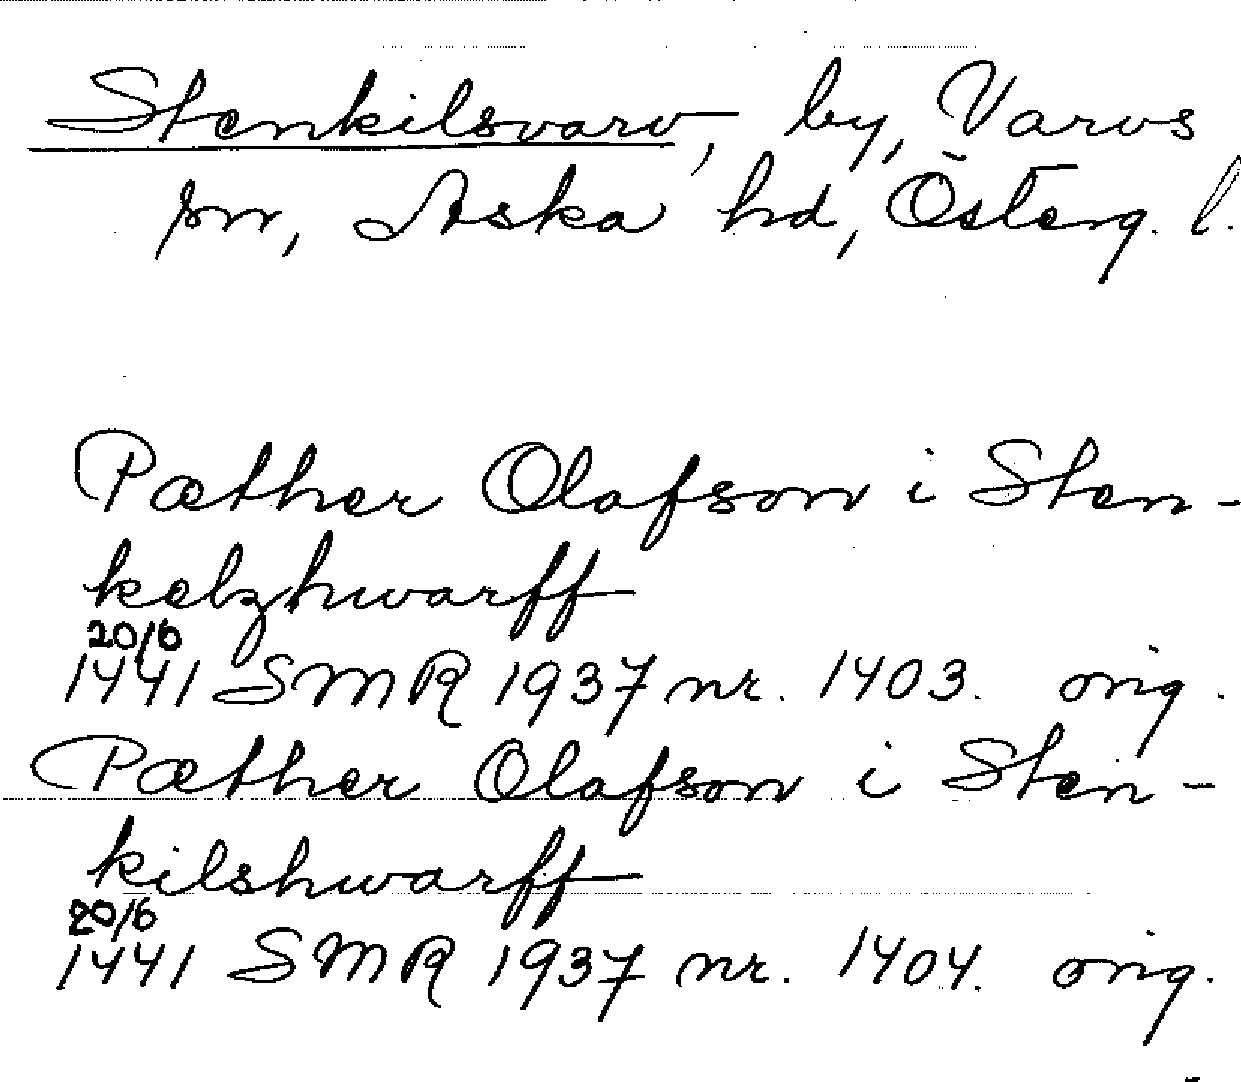 Stenkilsvarv, by, Varvs
sn, Aska hd, Österg. l.
Pæther Olafson i Sten-
kelzhwarff
20/6
1441 SMR 1937 nr. 1403. orig.
Pæther Olafson i Sten-
kilshwarff
20/6
1441 SMR 1937 nr. 1404. orig.